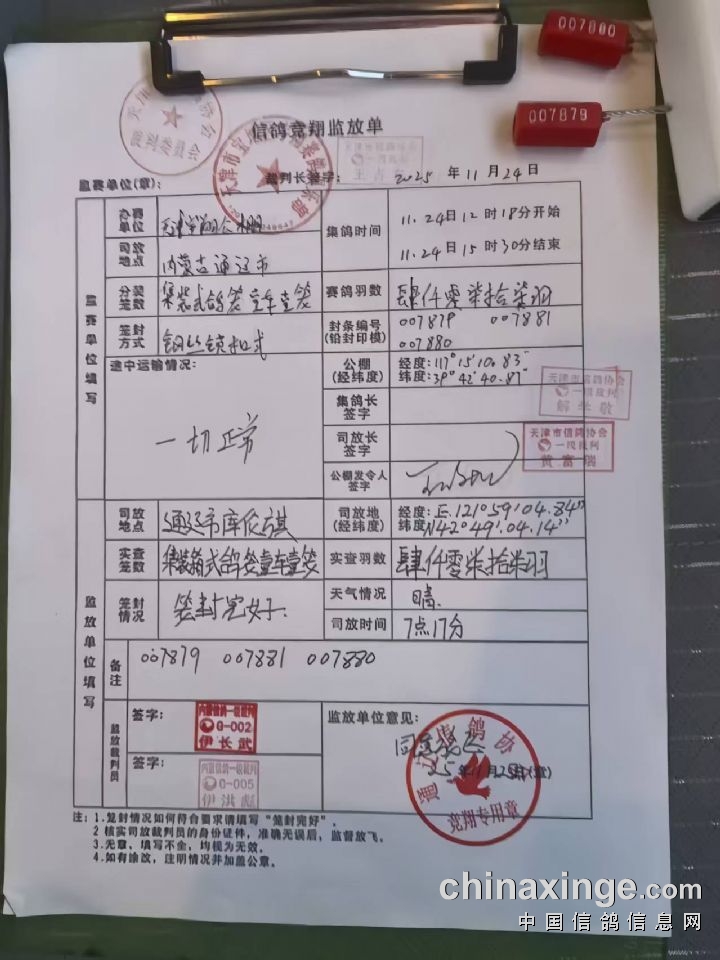 007880
007879
信鸽竞翔监放单
监赛单位(章): 裁判长签字: 2025 年 11 月 24 日
监赛单位填写
办赛单位
集鸽时间 11.24日 12时 18分开始
11.24日 15时 30分结束
司放地点 内蒙古通辽市
分装笼数 集装式鸽笼壹车壹笼 赛鸽羽数 肆仟零柒拾柒羽
笼封方式 钢丝锁扣式 封条编号(铅封印模) 007879 007881
007880
途中运输情况: 一切正常
公棚(经纬度) 经度: 117°15'10.83"
纬度: 39°42'40.87"
集鸽长签字
司放长签字
公棚发令人签字
天津市信鸽协会
一级裁判
天津市信鸽协会
一级裁判
黄富瑞
监放单位填写
司放地点 通辽市库伦旗 司放地(经纬度) 经度: E.121°59'04.84"
纬度: N42°49'.04.14"
实查笼数 集装箱式鸽笼壹车壹笼 实查羽数 肆仟零柒拾柒羽
笼封情况 笼封完好. 天气情况 晴.
司放时间 7点17分
备注 007879 007881 007880
监放裁判员
签字: 内蒙信鸽一级裁判
G-002
伊长武
签字: 内蒙信鸽一级裁判
G-005
伊洪彪
监放单位意见:
25年11月25日(章)
通辽信鸽协
竞翔专用章
注: 1.笼封情况如何符合要求请填写“笼封完好”。
2 核实司放裁判员的身份证件，准确无误后，监督放飞。
3.无章、填写不全，均视为无效。
4.如有涂改，注明情况并加盖公章。
chinaxinge.com
中国信鸽信息网